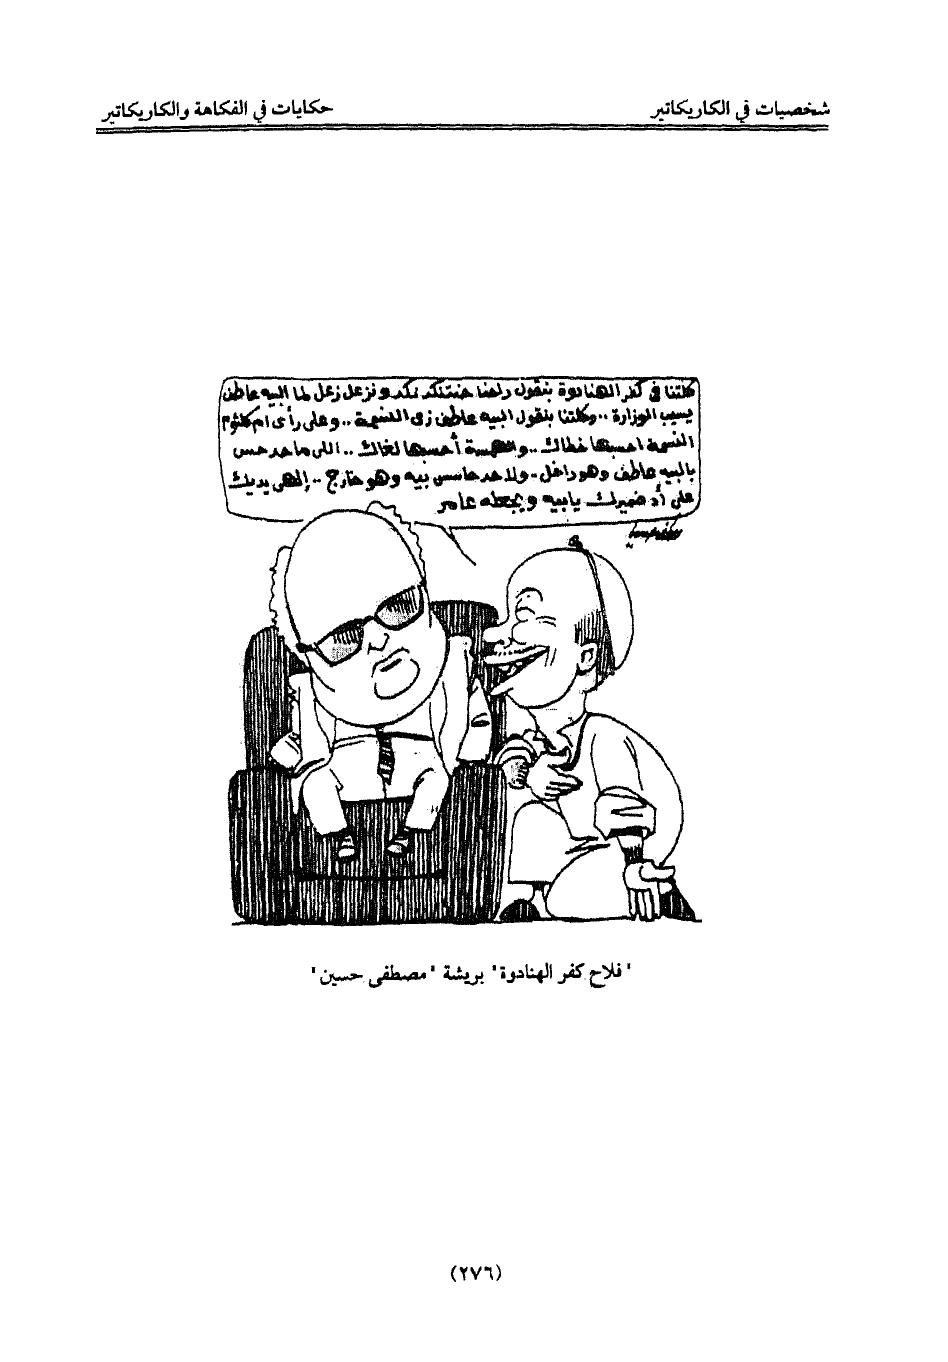 شخصيات في الكاريكاتير
حكايات في الفكاهة والكاريكاتير
كلتنا في كفر الهنادوة بنقول داحنا حنتنكد نكد ونزعل زعل لما البيه عاطف
يسيب الوزارة .. وكلتنا بنقول البيه عاطف زى النسمة .. وعلى رأى ام كلثوم
النسمة احسبها خطاك .. والهمسة أحسبها لغاك .. اللى ماحد حس
بالبيه عاطف وهو داخل .. ولاحد حاسس بيه وهو خارج .. إلهى يديك
على أد ضميرك يابيه ويجعله عامر
"فلاح كفر الهنادوة" بريشة "مصطفى حسين"
(٢٧٦)